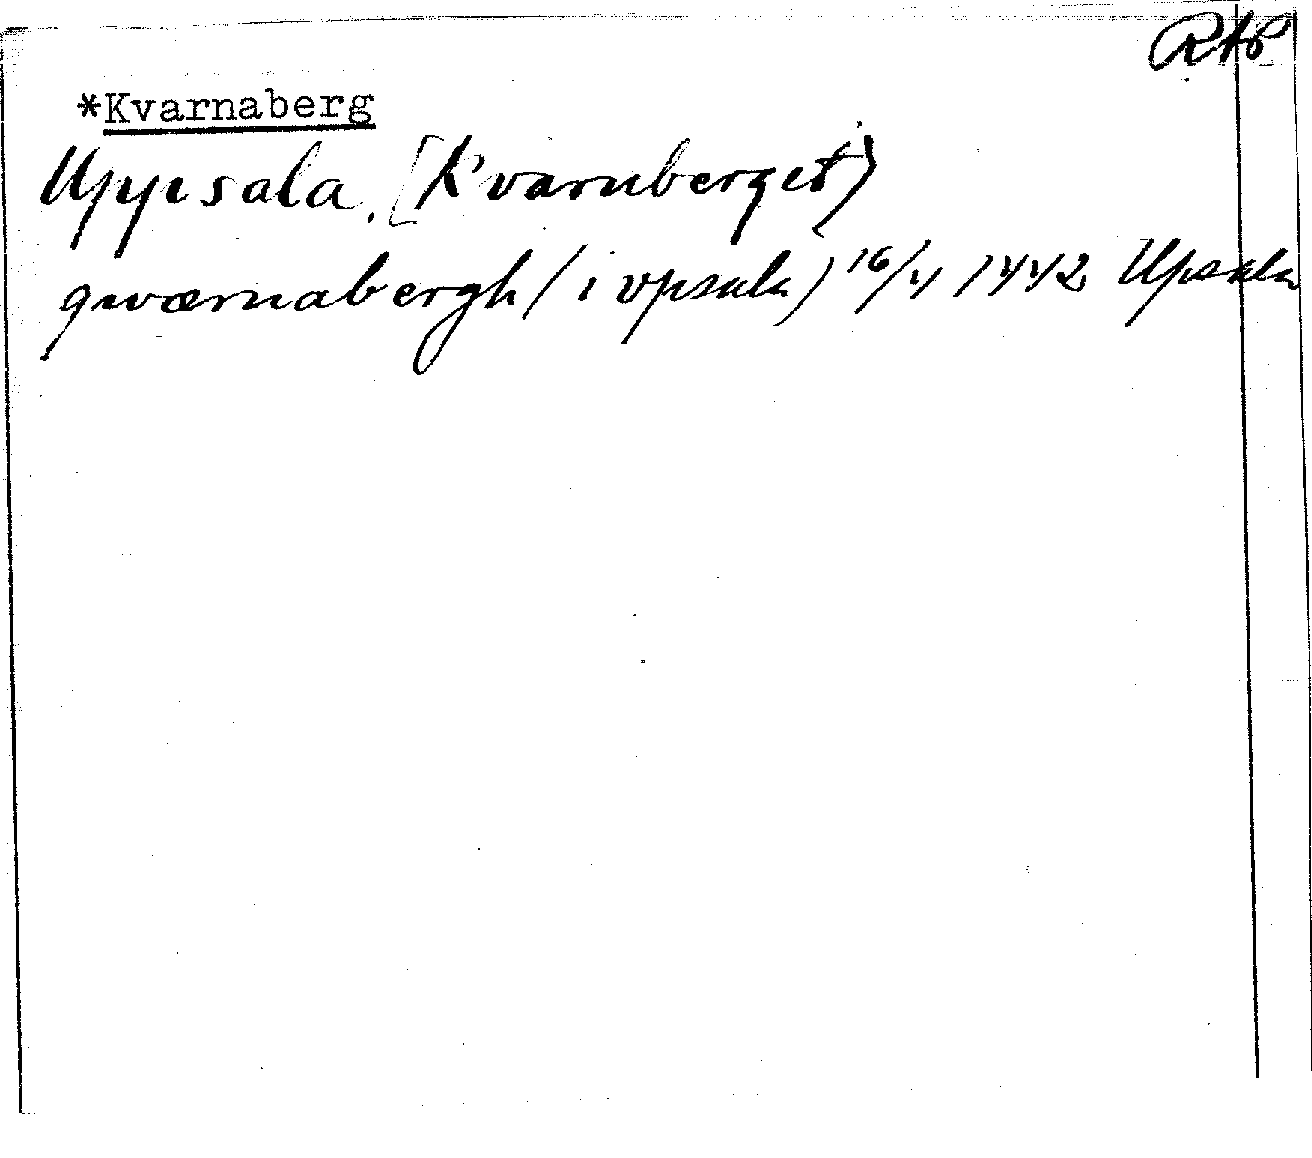 RAP
*Kvarnaberg
Uppsala. [Kvarnberget)
qwærnabergh (i vpsala) 16/4 1442 Upsala